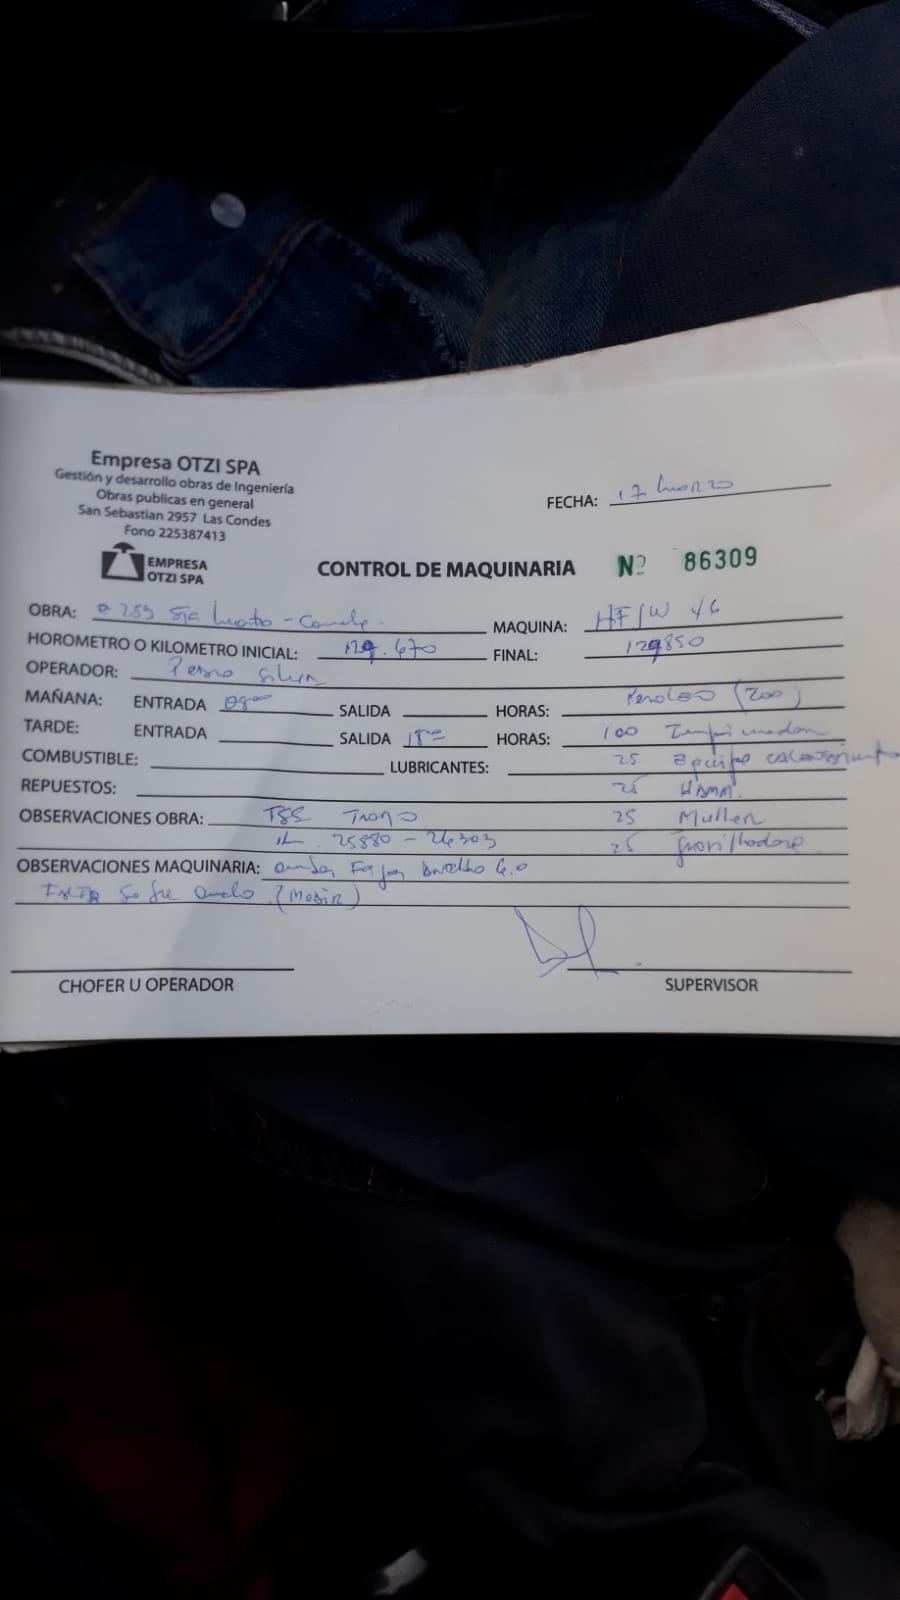 Empresa OTZI SPA
Gestión y desarrollo obras de Ingeniería
Obras publicas en general
San Sebastian 2957 Las Condes
Fono 225387413
EMPRESA
OTZI SPA
FECHA: 17 Marzo
CONTROL DE MAQUINARIA Nº 86309
OBRA: 253
MAQUINA:
HOROMETRO O KILOMETRO INICIAL: 129.670
FINAL: 129850
OPERADOR: Pedro Silva
MAÑANA: ENTRADA 0800 SALIDA HORAS: Petroleo (200)
TARDE: ENTRADA SALIDA 18 HORAS: 100 Imprimadon
COMBUSTIBLE: LUBRICANTES: 25 Equipo calentamiento
REPUESTOS: 25 HAMM.
OBSERVACIONES OBRA: Tramo 25 Muller
25880 - 26303 25 gravilladora
OBSERVACIONES MAQUINARIA: 6.0
(Medir)
CHOFER U OPERADOR
SUPERVISOR